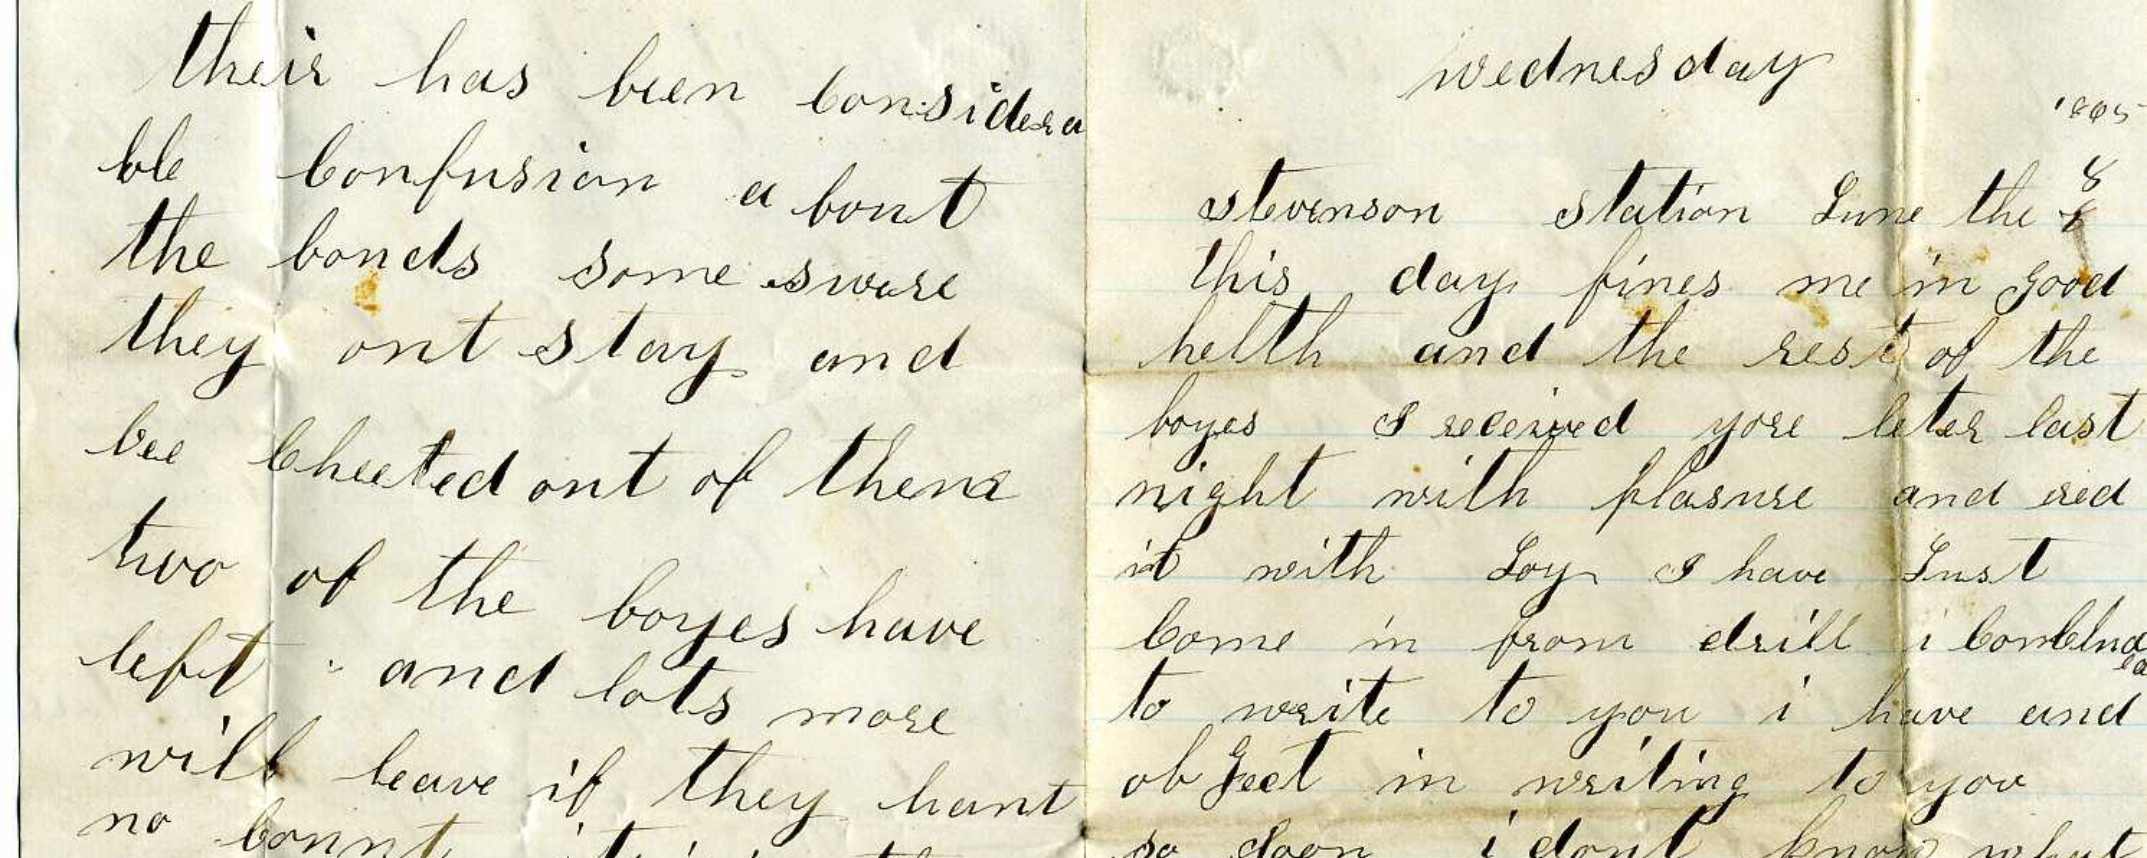 their has been considera
ble confusion a bout
the bonds some sware
they ont stay and
bee cheeted out of them
two of the boyes have
left and lots more
will leave if they hant
no bount
Wednesday
1865
stevenson station June the 8
this day fines me in good
helth and the rest of the
boyes I received yore leter last
night with plasure and red
it with Joy I have Just
come in from drill i conclud
ed
to write to you i have and
ob Ject in writing to you
so doon i dont know what